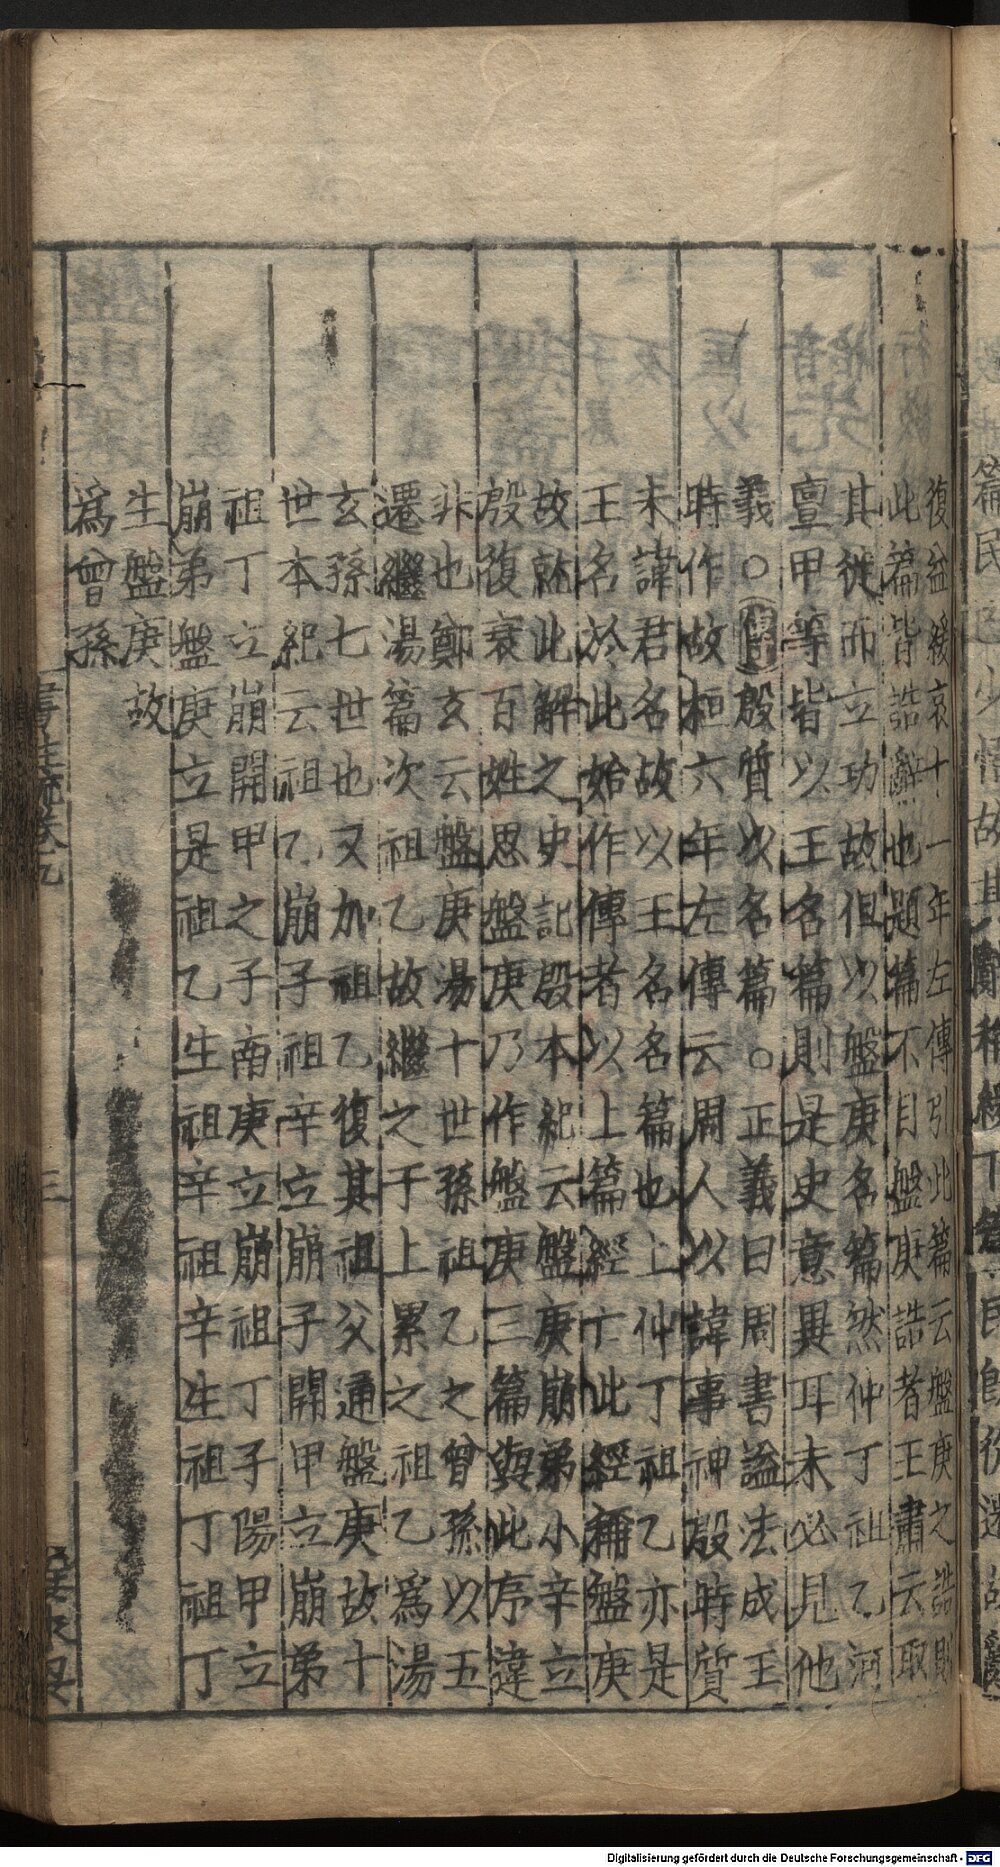 復益緩哀十一年左傳引此篇云盤庚之誥則
此篇皆誥辭也題篇不目盤庚誥者王肅云取
其徙而立功故但以盤庚名篇然仲丁祖乙河
亶甲等皆以王名篇則是史意異耳未必見他
義〇殷質以名篇〇正義曰周書謚法成王
時作故桓六年左傳云周人以諱事神殷時質
未諱君名故以王名名篇也上仲丁祖乙亦是
王名於此始作傳者以上篇經亡此經稱盤庚
故就此解之史記殷本紀云盤庚崩弟小辛立
殷復衰百姓思盤庚乃作盤庚三篇與此序違
非也鄭玄云盤庚湯十世孫祖乙之曾孫以五
遷繼湯篇次祖乙故繼之于上累之祖乙為湯
玄孫七世也又加祖乙復其祖父通盤庚故十
世本紀云祖乙崩子祖辛立崩子開甲立崩弟
祖丁立崩開甲之子南庚立崩祖丁子陽甲立
崩弟盤庚立是祖乙生祖辛祖辛生祖丁祖丁
生盤庚故
為曾孫
三
Digitalisierung gefördert durch die Deutsche Forschungsgemeinschaft - DFG